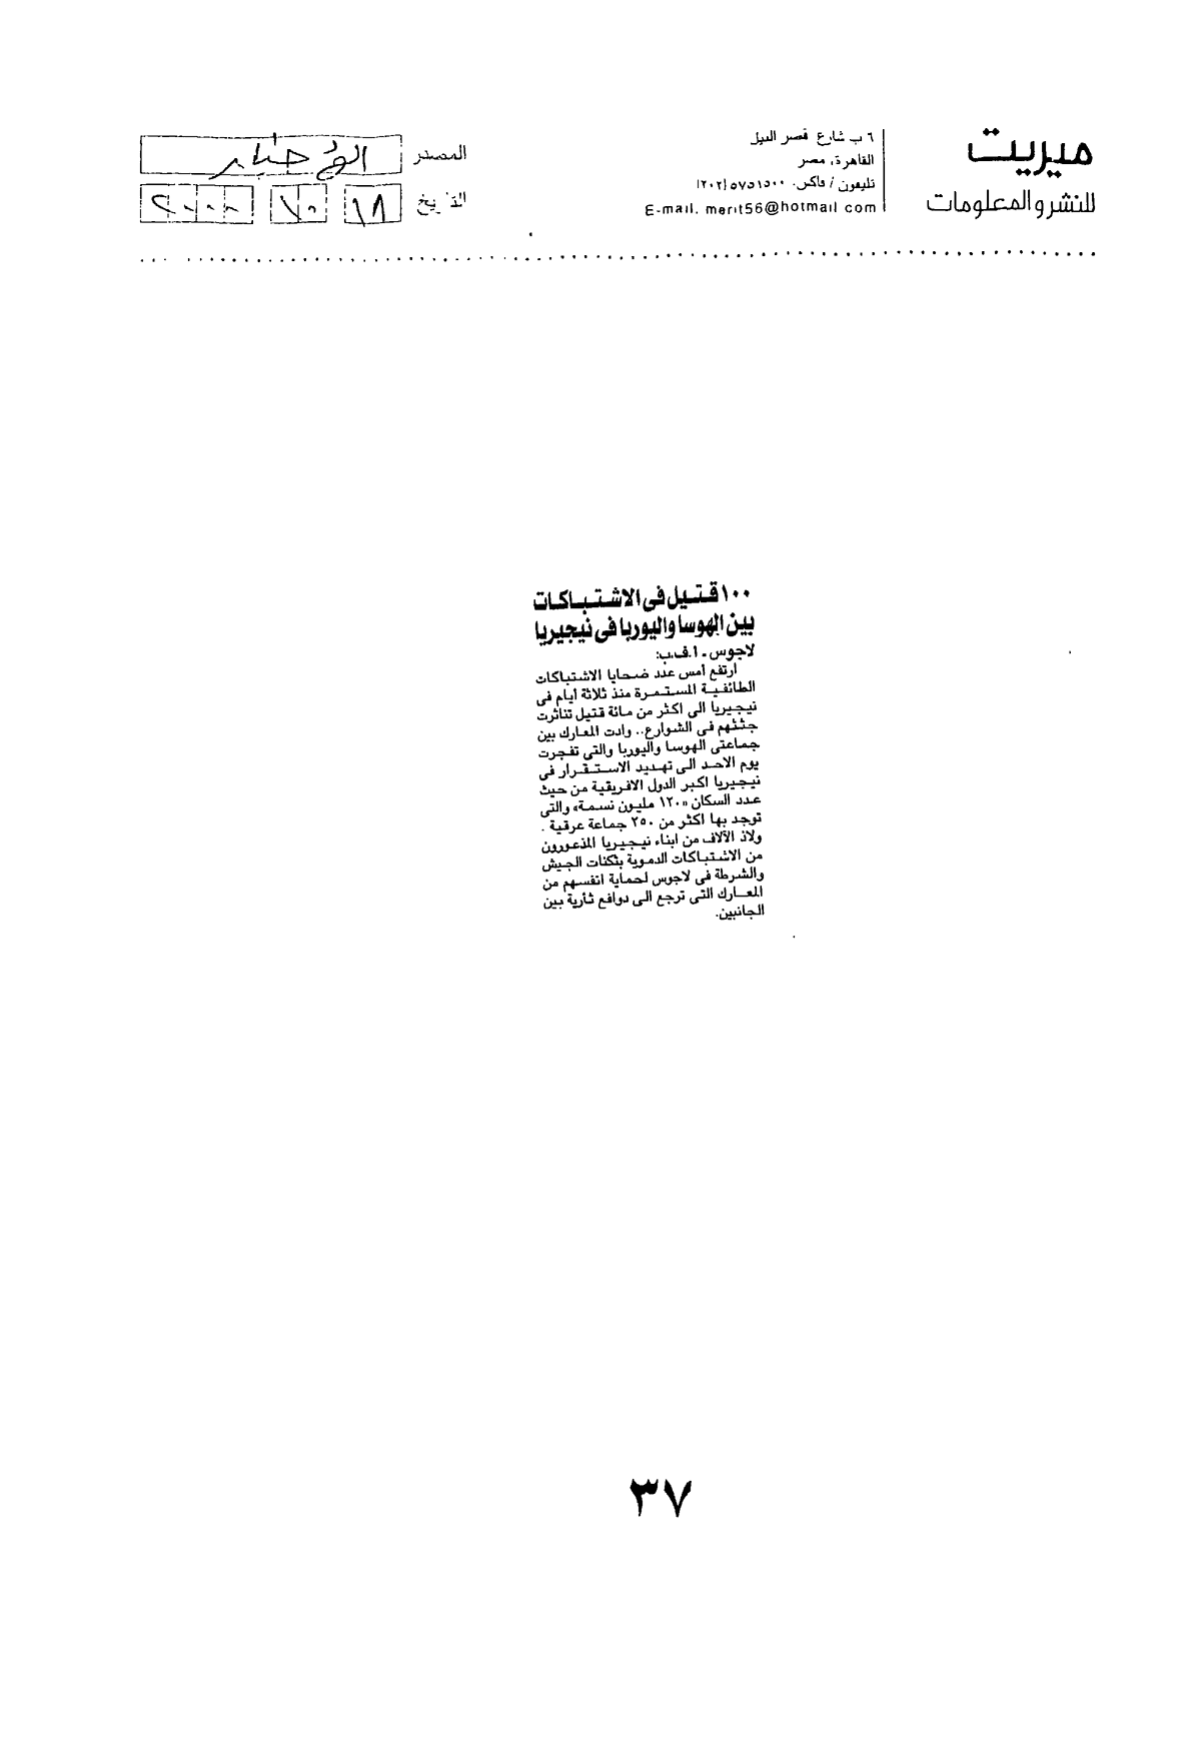 ميريت
للنشر والمعلومات
٦ ب شارع قصر النيل
القاهرة، مصر
تليفون / فاكس. ٥٧٥١٥٠٠ (٢٠٢)
E-mail. merit56@hotmail com
المصدر الأخبار
التاريخ ١٨ ١٠ ٢٠٠٠
١٠٠ قتيل فى الاشتباكات
بين الهوسا واليوربا فى نيجيريا
لاجوس - ا. ف. ب:
ارتفع أمس عدد ضحايا الاشتباكات
الطائفية المستمرة منذ ثلاثة ايام فى
نيجيريا الى اكثر من مائة قتيل تناثرت
جثثهم فى الشوارع.. وادت المعارك بين
جماعتى الهوسا واليوربا والتى تفجرت
يوم الاحد الى تهديد الاستقرار فى
نيجيريا اكبر الدول الافريقية من حيث
عدد السكان «١٢٠ مليون نسمة» والتى
توجد بها اكثر من ٢٥٠ جماعة عرقية .
ولاذ الآلاف من ابناء نيجيريا المذعورون
من الاشتباكات الدموية بثكنات الجيش
والشرطة فى لاجوس لحماية انفسهم من
المعارك التى ترجع الى دوافع ثأرية بين
الجانبين.
٣٧